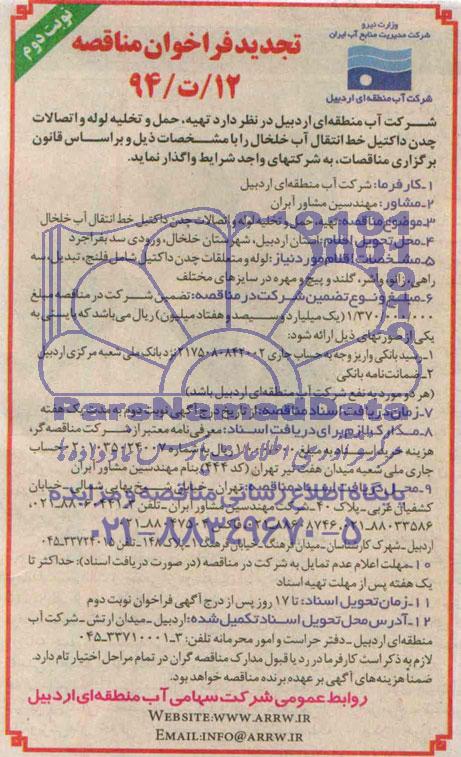 نوبت دوم
وزارت نیرو
شرکت مدیریت منابع آب ایران
شرکت آب منطقه‌ای اردبیل
تجدید فراخوان مناقصه
۹۴/ت/۱۲
شرکت آب منطقه‌ای اردبیل در نظر دارد تهیه، حمل و تخلیه لوله و اتصالات
چدن داکتیل خط انتقال آب خلخال را با مشخصات ذیل و بر اساس قانون
برگزاری مناقصات، به شرکتهای واجد شرایط واگذار نماید.
۱ـ کارفرما: شرکت آب منطقه‌ای اردبیل
۲ـ مشاور: مهندسین مشاور آبران
۳ـ موضوع مناقصه: تهیه حمل و تخلیه لوله و اتصالات چدن داکتیل خط انتقال آب خلخال
۴ـ محل تحویل اقلام: استان اردبیل، شهرستان خلخال، ورودی سد بفراجرد
۵ـ مشخصات اقلام مورد نیاز: لوله و متعلقات چدن داکتیل شامل فلنج، تبدیل، سه
راهی، زانو، واشر، گلند و پیچ و مهره در سایزهای مختلف
۶ـ مبلغ و نوع تضمین شرکت در مناقصه: تضمین شرکت در مناقصه مبلغ
۱/۳۷۰/۰۰۰/۰۰۰ (یک میلیارد و سیصد و هفتاد میلیون) ریال می‌باشد که بایستی به
یکی از صورتهای ذیل ارائه شود:
۱ـ رسید بانکی واریز وجه به حساب جاری ۲۱۷۵۰۸۰۸۴۲۰۰۲ نزد بانک ملی شعبه مرکزی اردبیل
۲ـ ضمانت‌نامه بانکی
(هر دو مورد به نفع شرکت آب منطقه‌ای اردبیل باشد)
۷ـ زمان دریافت اسناد مناقصه: از تاریخ درج آگهی نوبت دوم به مدت یک هفته
۸ـ مدارک لازم برای دریافت اسناد: معرفی‌نامه معتبر از شرکت مناقصه‌گر،
هزینه خرید اسناد به مبلغ ریال به شماره حساب
جاری ملی شعبه میدان هفت تیر تهران (کد ۴۴۴) بنام مهندسین مشاور آبران
۹ـ محل دریافت اسناد مناقصه: تهران ـ خیابان شیخ بهایی شمالی ـ خیابان
کشفیان غربی ـ پلاک ۴۰ ـ شرکت مهندسین مشاور آبران ـ تلفن:
۸۸۰۳۳۵۸۶ـ۰۲۱
اردبیل ـ شهرک کارشناسان ـ میدان فرهنگ ـ خیابان فرهنگ ۱ ـ پلاک ۱۴۸ ـ تلفن ۳۳۷۲۴۰۱۵ـ۰۴۵
۱۰ـ مهلت اعلام عدم تمایل به شرکت در مناقصه (در صورت دریافت اسناد): حداکثر تا
یک هفته پس از مهلت تهیه اسناد
۱۱ـ زمان تحویل اسناد: تا ۱۷ روز پس از درج آگهی فراخوان نوبت دوم
۱۲ـ آدرس محل تحویل اسناد تکمیل شده: اردبیل ـ میدان ارتش ـ شرکت آب
منطقه‌ای اردبیل ـ دفتر حراست و امور محرمانه تلفن: ۳ـ۳۳۷۱۰۰۰۱ـ۰۴۵
لازم به ذکر است کارفرما در رد یا قبول مدارک مناقصه گران در تمام مراحل اختیار تام دارد.
ضمنا هزینه‌های آگهی بر عهده برنده مناقصه خواهد بود.
روابط عمومی شرکت سهامی آب منطقه‌ای اردبیل
WEBSITE:WWW.ARRW.IR
EMAIL:INFO@ARRW.IR
پایگاه اطلاع رسانی مناقصه و مزایده
۰۲۱-۸۸۳۴۹۶۷۰-۵